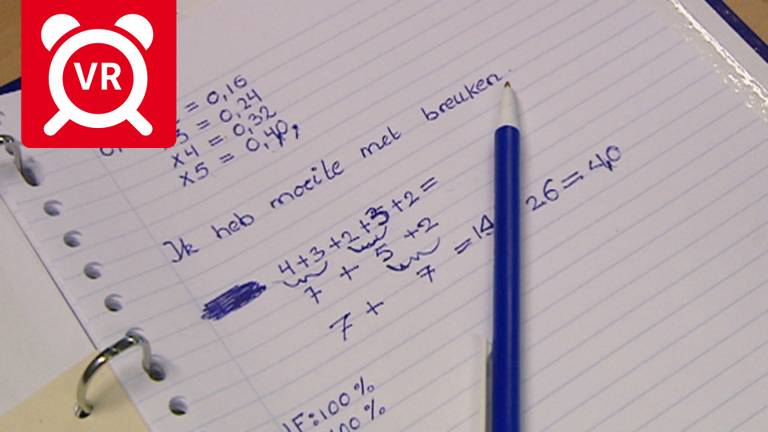 VR
= 0,16
3 = 0,24
x4 = 0,32
x5 = 0,40,
Ik heb moeile met breuken.
4+3+2+3+2=
7 + 5 +2
7 + 7 =14 26=40
1F:100%
100%